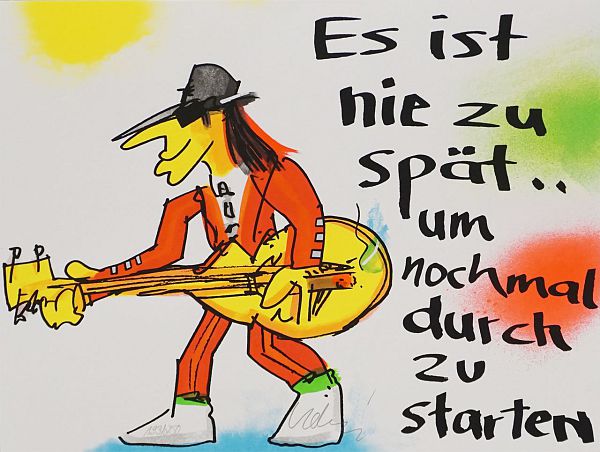 Es ist
nie zu
spät..
um
nochmal
durch
zu
starten